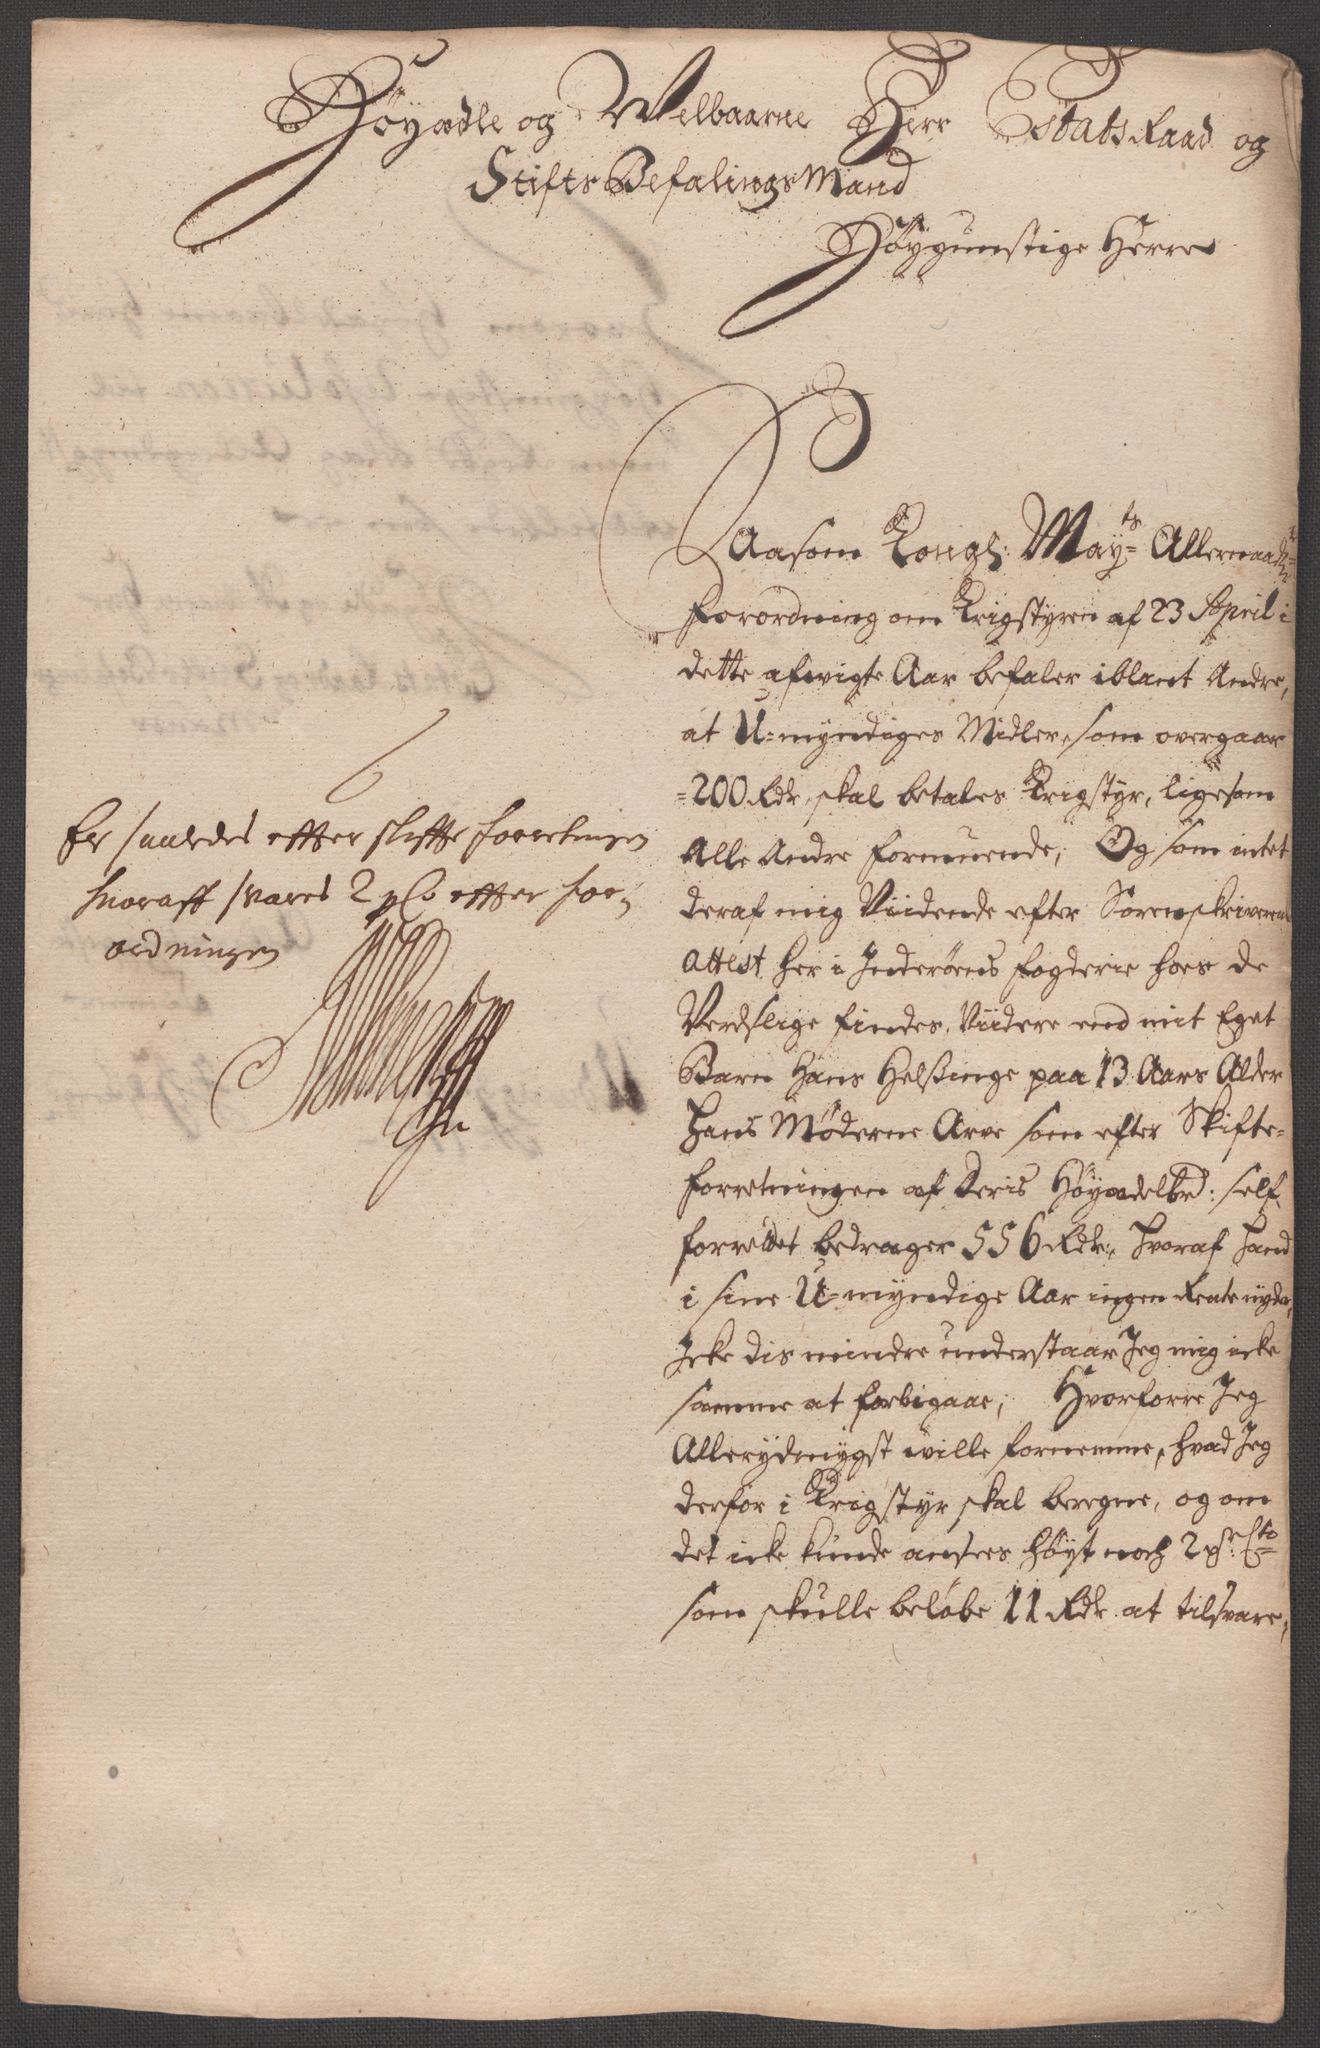 Höyædle og Velbaarne Herr Estats Raad og
Stifts Befalings Mand
Höygunstige Herre
Saasom Kongl: May:ts Allernaad:
forordning om Krigstyren af 23 April i
dette afvigte Aar befaler iblant Andre,
at U=myndiges Midler, som overgaar
=200 Rdr skal betales Krigstyr, ligesom
Alle Andre formuende; Og som intet
deraf mig Viidende efter Sorenskriverens
Attest her i Inderöens fogderie hoes de
Verdslige findes, Viidere end mit Eget
Barn Hans Helsinge paa 13 Aars Alder
Hans Möderne Arve som efter Skifte-
forretningen af Deris Höyædelhed: self
forrettet bedrager 556 Rdr:, hvoraf hand
i sine U-myndige Aar ingen Rente nyder,
Icke dis mindre understaar Jeg mig icke
samme at forbigaae; Hvorforre Jeg
Allerydmygst wille fornemme, hvad Jeg
derfor i Krigstyr skal beregne, og om
det icke kunde ansees höyt noch 2 pr Cto
som skulle belöbe 11 Rdr at tilsvare,
Er saaledes effter skiffte forretningen
hvoraff svares 2 pCo effter for-
ordningen